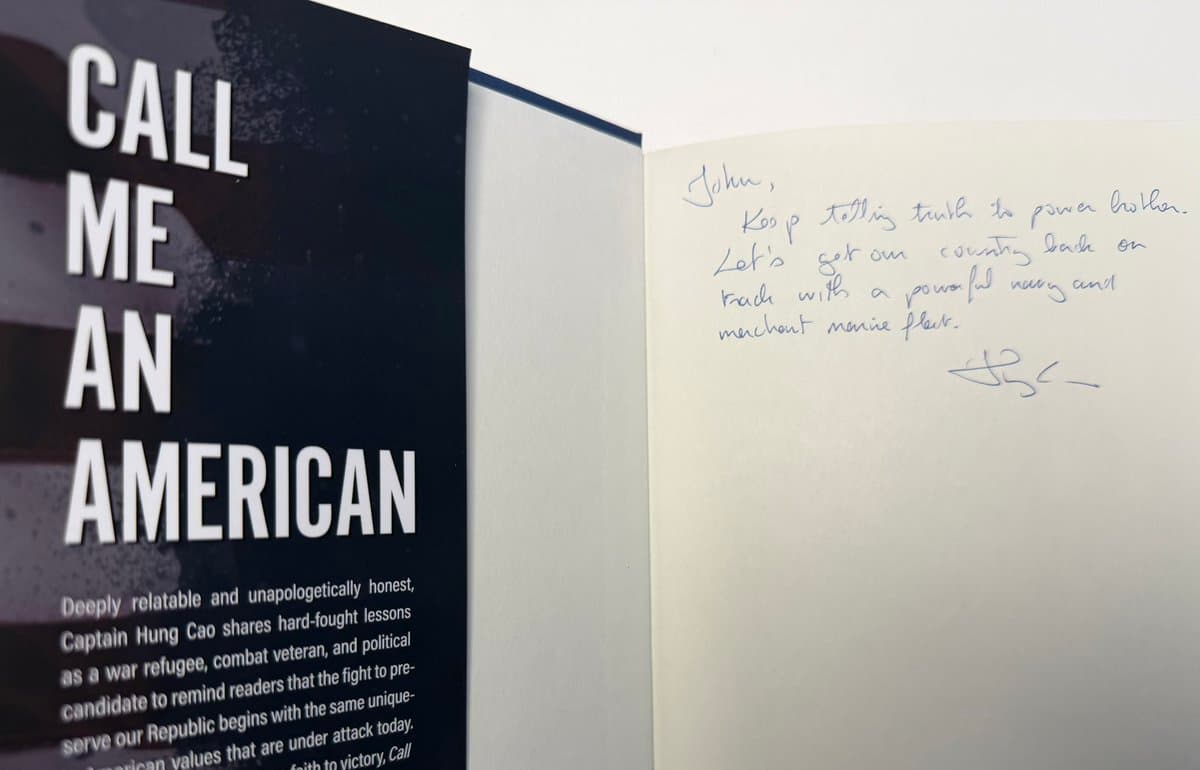 CALL
ME
AN
AMERICAN
Deeply relatable and unapologetically honest,
Captain Hung Cao shares hard-fought lessons
as a war refugee, combat veteran, and political
candidate to remind readers that the fight to pre-
serve our Republic begins with the same unique-
values that are under attack today.
to victory, Call
John,
Keep telling truth to power brother.
Let's get our country back on
track with a powerful navy and
merchant marine fleet.